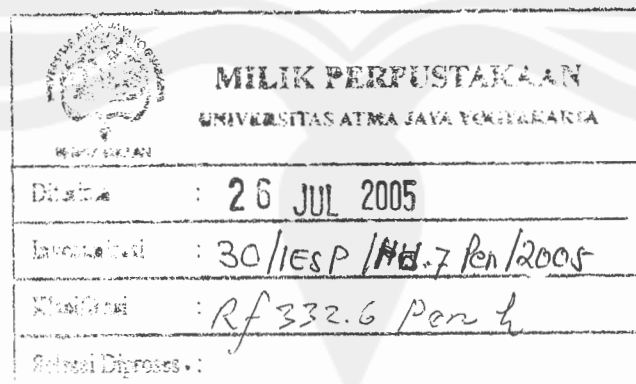 MILIK PERPUSTAKAAN
UNIVERSITAS ATMA JAYA YOGYAKARTA
Diterima : 26 JUL 2005
Inventarisasi : 30/IESP/ .7 Pen/2005
Klasifikasi : Rf 332.6 Pen h
Selesai Diproses :